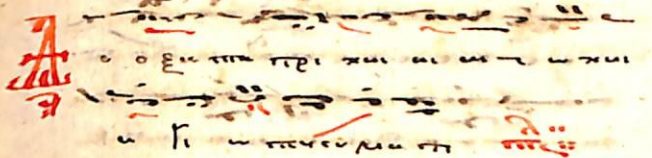 Δο ο ξα πα τρι και υι υι ι ω και
α γι ω πνευμα τι